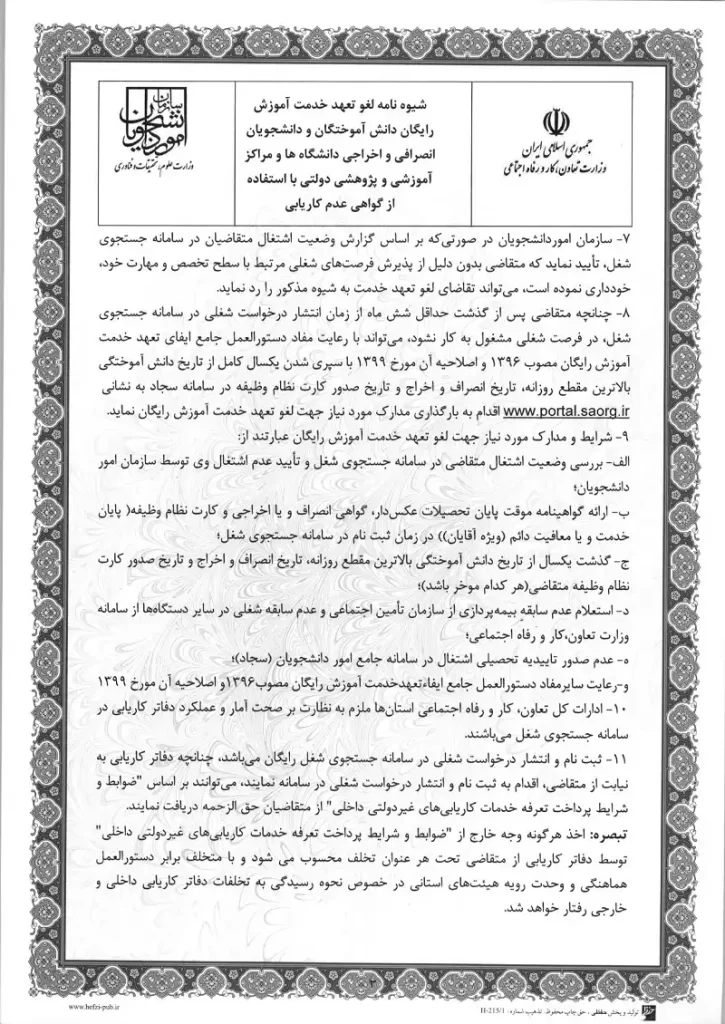 جمهوری اسلامی ایران
وزارت تعاون، کار و رفاه اجتماعی
شیوه نامه لغو تعهد خدمت آموزش
رایگان دانش آموختگان و دانشجویان
انصرافی و اخراجی دانشگاه ها و مراکز
آموزشی و پژوهشی دولتی با استفاده
از گواهی عدم کاریابی
سازمان امور دانشجویان
وزارت علوم، تحقیقات و فناوری
۷- سازمان اموردانشجویان در صورتی‌که بر اساس گزارش وضعیت اشتغال متقاضیان در سامانه جستجوی
شغل، تأیید نماید که متقاضی بدون دلیل از پذیرش فرصت‌های شغلی مرتبط با سطح تخصص و مهارت خود،
خودداری نموده است، می‌تواند تقاضای لغو تعهد خدمت به شیوه مذکور را رد نماید.
۸- چنانچه متقاضی پس از گذشت حداقل شش ماه از زمان انتشار درخواست شغلی در سامانه جستجوی
شغل، در فرصت شغلی مشغول به کار نشود، می‌تواند با رعایت مفاد دستورالعمل جامع ایفای تعهد خدمت
آموزش رایگان مصوب ۱۳۹۶ و اصلاحیه آن مورخ ۱۳۹۹ با سپری شدن یکسال کامل از تاریخ دانش آموختگی
بالاترین مقطع روزانه، تاریخ انصراف و اخراج و تاریخ صدور کارت نظام وظیفه در سامانه سجاد به نشانی
www.portal.saorg.ir اقدام به بارگذاری مدارک مورد نیاز جهت لغو تعهد خدمت آموزش رایگان نماید.
۹- شرایط و مدارک مورد نیاز جهت لغو تعهد خدمت آموزش رایگان عبارتند از:
الف- بررسی وضعیت اشتغال متقاضی در سامانه جستجوی شغل و تأیید عدم اشتغال وی توسط سازمان امور
دانشجویان؛
ب- ارائه گواهینامه موقت پایان تحصیلات عکس‌دار، گواهی انصراف و یا اخراجی و کارت نظام وظیفه( پایان
خدمت و یا معافیت دائم (ویژه آقایان)) در زمان ثبت نام در سامانه جستجوی شغل؛
ج- گذشت یکسال از تاریخ دانش آموختگی بالاترین مقطع روزانه، تاریخ انصراف و اخراج و تاریخ صدور کارت
نظام وظیفه متقاضی(هر کدام موخر باشد)؛
د- استعلام عدم سابقه بیمه‌پردازی از سازمان تأمین اجتماعی و عدم سابقه شغلی در سایر دستگاه‌ها از سامانه
وزارت تعاون،کار و رفاه اجتماعی؛
ه- عدم صدور تاییدیه تحصیلی اشتغال در سامانه جامع امور دانشجویان (سجاد)؛
و-رعایت سایرمفاد دستورالعمل جامع ایفاءتعهدخدمت آموزش رایگان مصوب۱۳۹۶و اصلاحیه آن مورخ ۱۳۹۹
۱۰- ادارات کل تعاون، کار و رفاه اجتماعی استان‌ها ملزم به نظارت بر صحت آمار و عملکرد دفاتر کاریابی در
سامانه جستجوی شغل می‌باشند.
۱۱- ثبت نام و انتشار درخواست شغلی در سامانه جستجوی شغل رایگان می‌باشد، چنانچه دفاتر کاریابی به
نیابت از متقاضی، اقدام به ثبت نام و انتشار درخواست شغلی در سامانه نمایند، می‌توانند بر اساس "ضوابط و
شرایط پرداخت تعرفه خدمات کاریابی‌های غیردولتی داخلی" از متقاضیان حق الزحمه دریافت نمایند.
تبصره: اخذ هرگونه وجه خارج از "ضوابط و شرایط پرداخت تعرفه خدمات کاریابی‌های غیردولتی داخلی"
توسط دفاتر کاریابی از متقاضی تحت هر عنوان تخلف محسوب می شود و با متخلف برابر دستورالعمل
هماهنگی و وحدت رویه هیئت‌های استانی در خصوص نحوه رسیدگی به تخلفات دفاتر کاریابی داخلی و
خارجی رفتار خواهد شد.
تولید و پخش حفظی . حق چاپ محفوظ . تذهیب شماره : H-215/1
www.hefzi-pub.ir